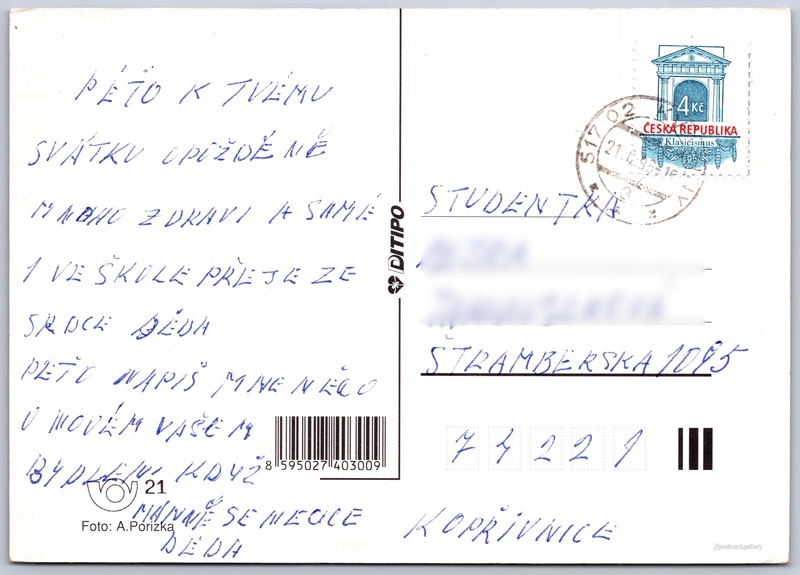 PÉŤO K TVÉMU
SVÁTKU OPOŽDĚNĚ
MNOHO ZDRAVI A SAMÉ
1 VE ŠKOLE PŘEJE ZE
SRDCE DĚDA
PEŤO NAPIŠ MNE NĚCO
O NOVÉM VAŠEM
BYDLENI KDYŽ
SE MECICE
DĚDA
8 595027 403009
21
Foto: A.Pořízka
DITIPO
4 Kč
ČESKÁ REPUBLIKA
Klasicismus
517 02
STUDENTKA
ŠTRAMBERSKA 1095
74221
KOPŘIVNICE
//postcard.gallery